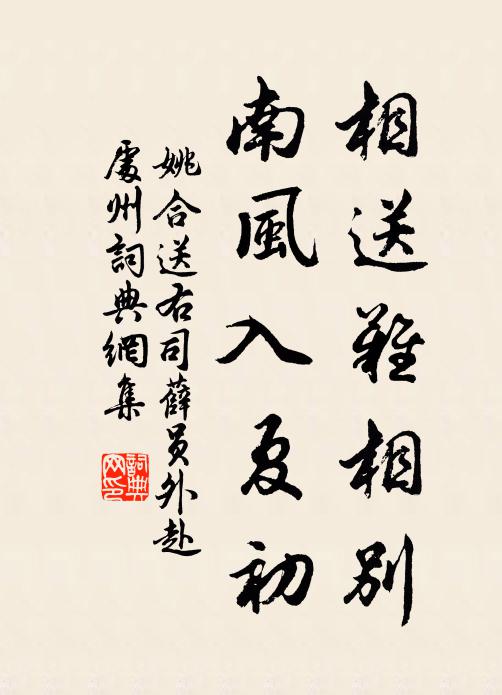 相送難相別
南風入夏初
姚合送右司薛員外赴
處州詞典網集
詞典
网印